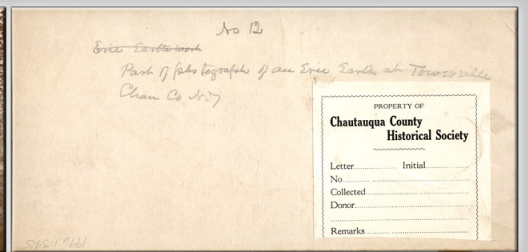 No 12
Erie Earthwork
Part of photograph of an Erie Earth at Towerville
Chau Co N.Y
PROPERTY OF
Chautauqua County
Historical Society
Letter Initial
No.
Collected
Donor
Remarks